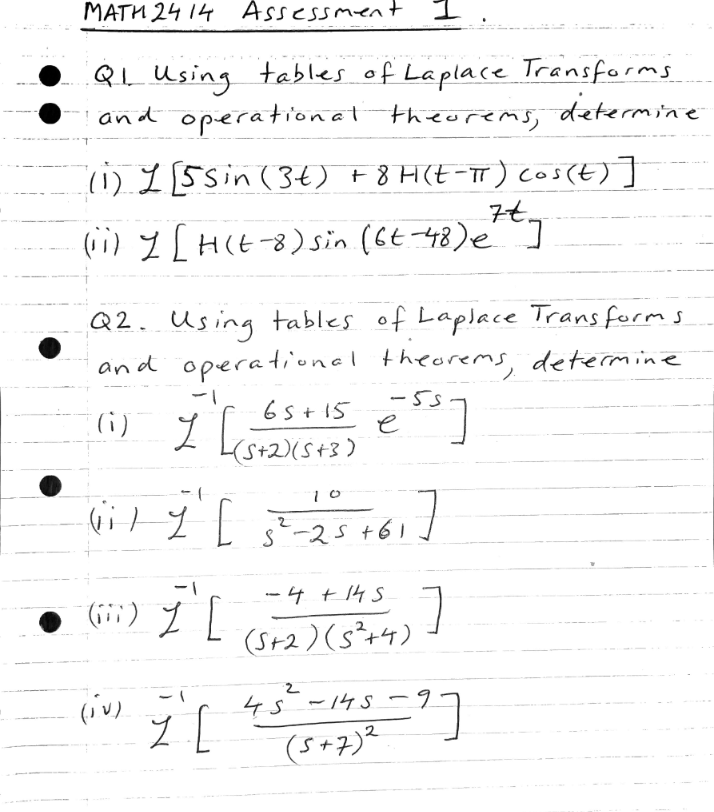 MATH2414 Assessment 1.
Q1. Using tables of Laplace Transforms
and operational theorems, determine
(i) ℒ[5sin(3t) + 8H(t-π)cos(t)]
(ii) ℒ[H(t-8)sin(6t-48)e^{7t}]
Q2. Using tables of Laplace Transforms
and operational theorems, determine
(i) ℒ^{-1}[\frac{6s+15}{(s+2)(s+3)} e^{-5s}]
(ii) ℒ^{-1}[\frac{10}{s^2-2s+61}]
(iii) ℒ^{-1}[\frac{-4+14s}{(s+2)(s^2+4)}]
(iv) ℒ^{-1}[\frac{4s^2-14s-9}{(s+7)^2}]